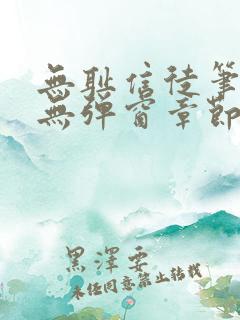 無耻信徒筆
無彈窗章節
黑澤要
未經同意禁止轉載